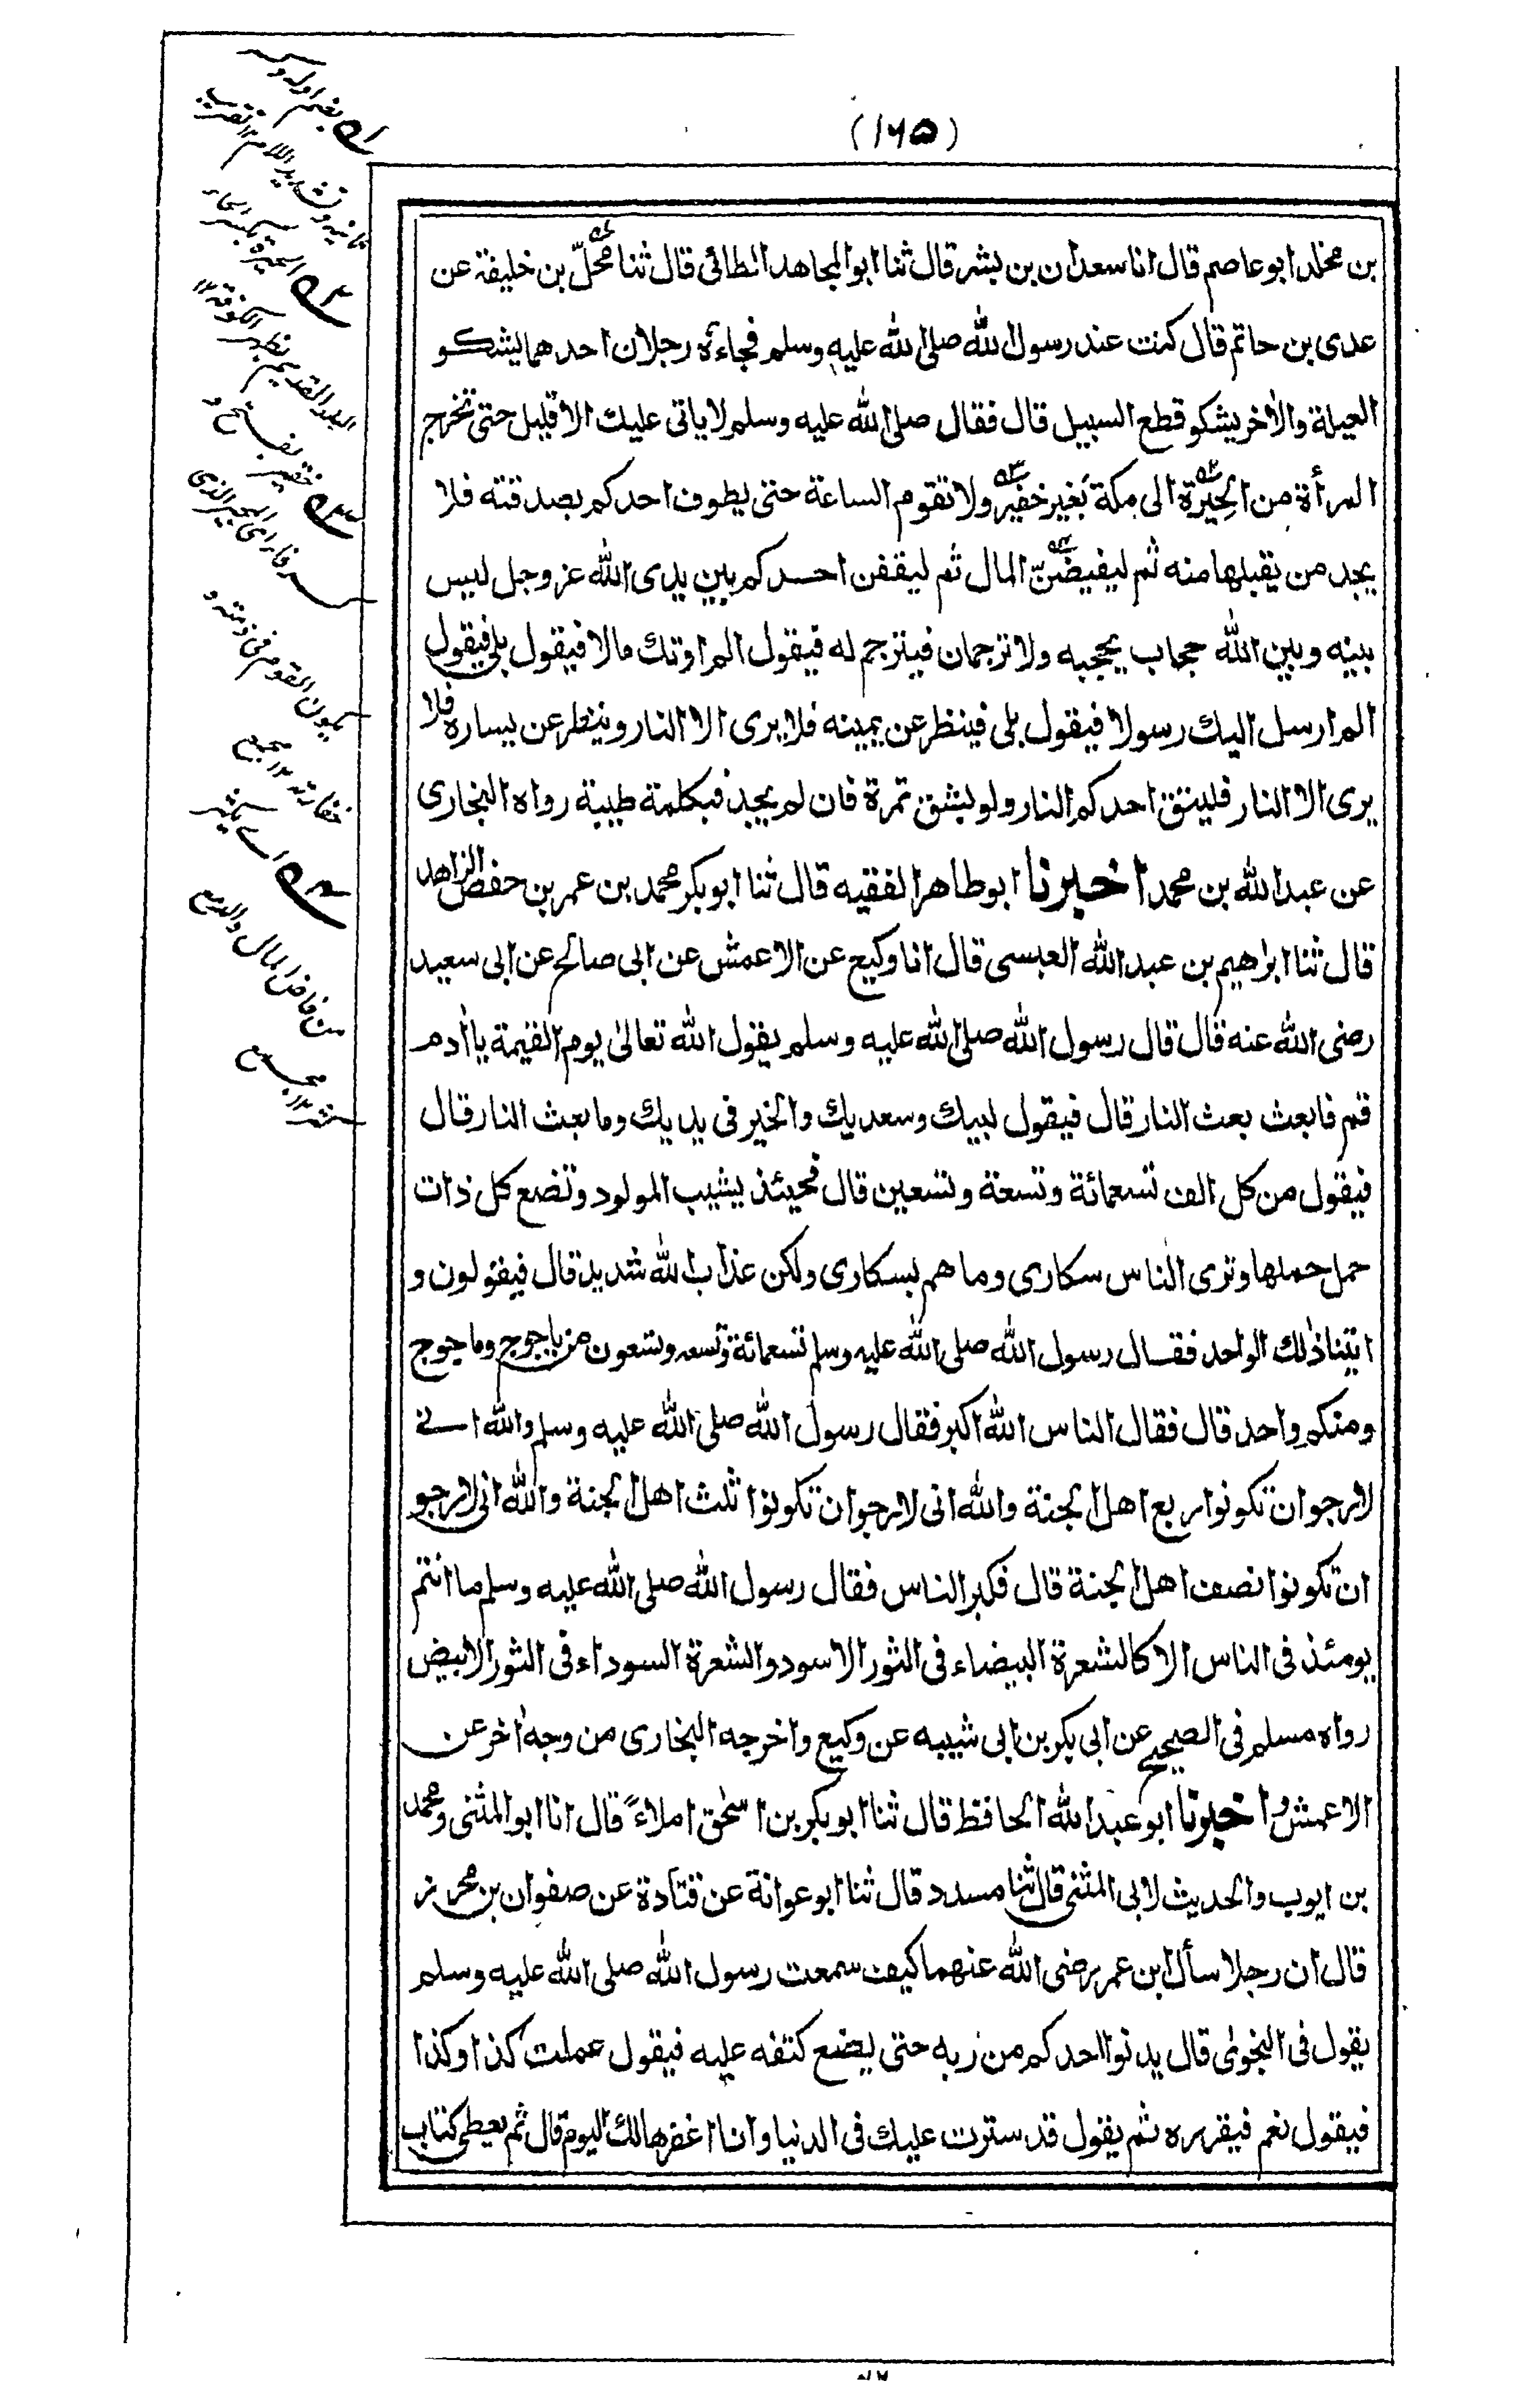 (١٦٥)
بن مخلد ابو عاصم قال انا سعدان بن بشر قال ثنا ابو المجاهد الطائى قال ثنا محلّ بن خليفة عن
عدى بن حاتم قال كنت عند رسول الله صلى الله عليه وسلم فجاءه رجلان احدهما يشكو
العيلة والآخر يشكو قطع السبيل قال فقال صلى الله عليه وسلم لا ياتى عليك الا قليل حتى تخرج
المرأة من الحِيْرة الى مكة بغير خفير ولا تقوم الساعة حتى يطوف احدكم بصدقته فلا
يجد من يقبلها منه ثم ليفيضنّ المال ثم ليقفن احدكم بين يدى الله عز وجل ليس
بينه وبين الله حجاب يحجبه ولا ترجمان فيترجم له فيقول الم اوتك مالا فيقول بلى فيقول
الم ارسل اليك رسولا فيقول بلى فينظر عن يمينه فلا يرى الا النار وينظر عن يساره فلا
يرى الا النار فليتق احدكم النار ولو بشق تمرة فان لم يجد فبكلمة طيبة رواه البخارى
عن عبد الله بن محمد اخبرنا ابو طاهر الفقيه قال ثنا ابو بكر محمد بن عمر بن حفص الزاهد
قال ثنا ابرٰهيم بن عبد الله العبسى قال انا وكيع عن الاعمش عن ابى صالح عن ابى سعيد
رضى الله عنه قال قال رسول الله صلى الله عليه وسلم يقول الله تعالىٰ يوم القيٰمة يا اٰدم
قم فابعث بعث النار قال فيقول لبيك وسعديك والخير فى يديك وما بعث النار قال
فيقول من كل الف تسعمائة وتسعة وتسعين قال فحينئذ يشيب المولود وتضع كل ذات
حمل حملها وترى الناس سكارى وما هم بسكارى ولكن عذاب الله شديد قال فيقولون و
ايتنا ذٰلك الواحد فقال رسول الله صلى الله عليه وسلم تسعمائة وتسعه وتسعون من ياجوج وماجوج
ومنكم واحد قال فقال الناس الله اكبر فقال رسول الله صلى الله عليه وسلم والله انى
لارجو ان تكونوا ربع اهل الجنة والله انى لارجو ان تكونوا ثلث اهل الجنة والله انى لارجو
ان تكونوا نصف اهل الجنة قال فكبر الناس فقال رسول الله صلى الله عليه وسلم ما انتم
يومئذ فى الناس الا كالشعرة البيضاء فى الثور الاسود والشعرة السوداء فى الثور الابيض
رواه مسلم فى الصحيح عن ابى بكر بن ابى شيبه عن وكيع واخرجه البخارى من وجه اٰخر عن
الاعمش واخبرنا ابو عبد الله الحافظ قال ثنا ابو بكر بن اسحٰق املاءً قال انا ابو المثنى ومحمد
بن ايوب والحديث لابى المثنى قال ثنا مسدد قال ثنا ابو عوانة عن قتادة عن صفوان بن محرز
قال ان رجلا سأل ابن عمر رضى الله عنهما كيف سمعت رسول الله صلى الله عليه وسلم
يقول فى النجوىٰ قال يدنوا احدكم من ربه حتى يضع كتفه عليه فيقول عملت كذا وكذا
فيقول نعم فيقرره ثم يقول قد سترت عليك فى الدنيا وانا اغفرها لك اليوم قال ثم يعطى كتاب
بضم اوله وكسر
ثانيه وتشديد اللام ١٢ تقريب
الحيرة بكسر الحاء
البلد القديم بظهر الكوفة ١٢
خفير بفتح و
يكون القوم فى ذمته و
خفارته ١٢ مجمع
اے يكثر
من فاض المال والدمع
مجمع